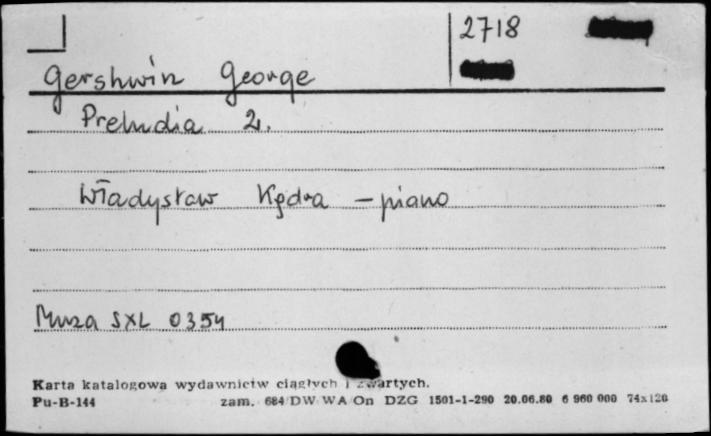 2718
Gershwin George
Preludia 2.
Władysław Kędra - piano
Muza SXL 0354
Karta katalogowa wydawnictw ciągłych i zwartych.
Pu-B-144 zam. 684/DW WA On DZG 1501-1-290 20.06.80 6 960 000 74x120